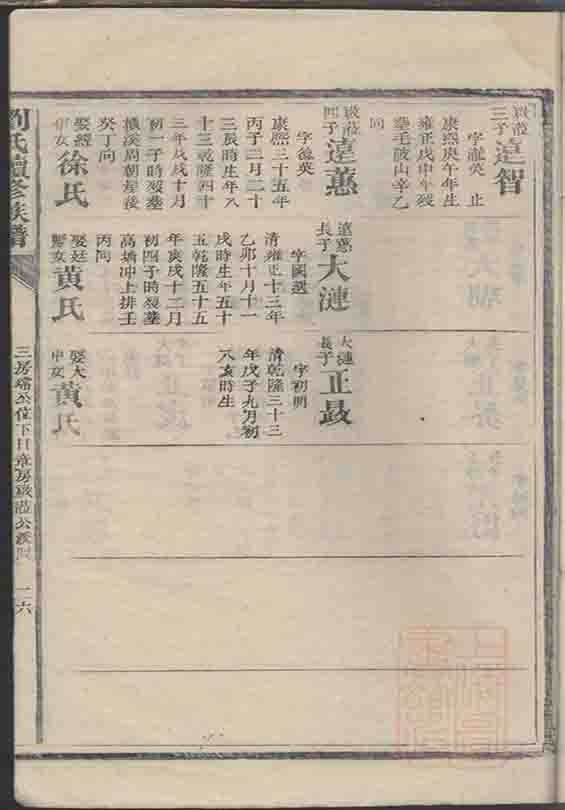 啟蒞
三子
遠智
字瀧英 止
康熙庚午年生
雍正戊申年殁
塟毛陂山辛乙
向
啟蒞
四子
遠蕙
字德英
康熙三十五年
丙子三月二十
三辰時生年八
十三乾隆四十
三年戊戌十月
初一子時殁塟
橫溪周朝屋後
癸丁向
娶經
伊女
徐氏
遠蕙
長子
大漣
字國選
清雍正十三年
乙卯十月十一
戌時生年五十
五乾隆五十五
年庚戌十二月
初四子時殁塟
高塘冲上排壬
丙向
娶廷
黄氏
大漣
長子
正晸
字初明
清乾隆三十三
年戊子九月初
八亥時生
娶大
申女
黄氏
劉氏續修族譜
三房
一六